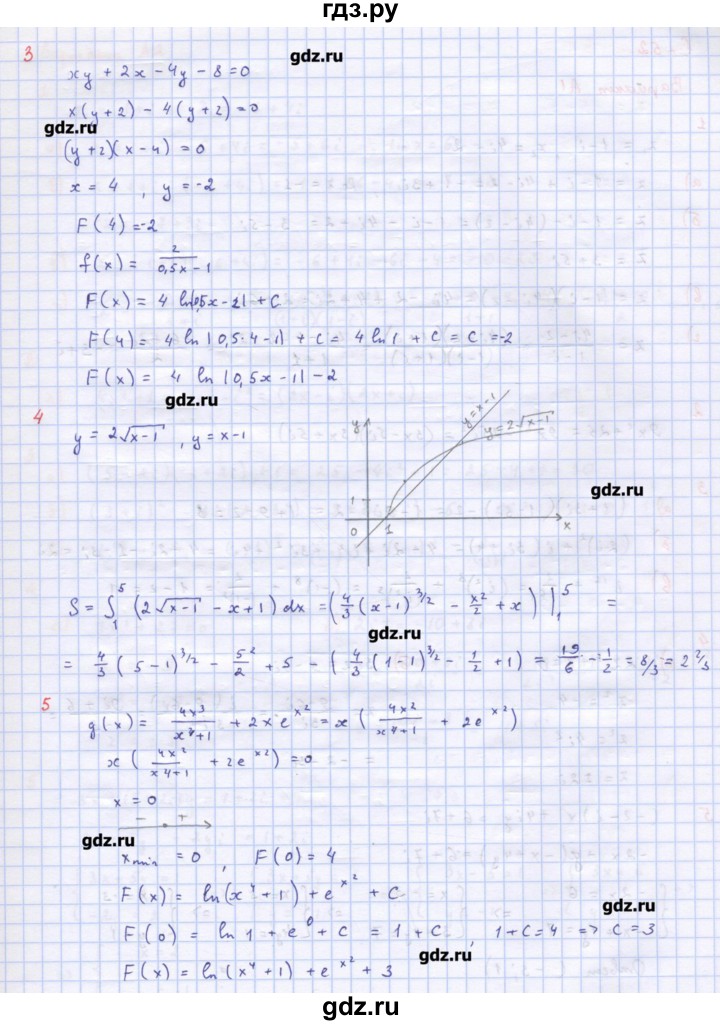 гдз.ру
3
xy + 2x - 4y - 8 = 0
gdz.ru
x(y+2) - 4(y+2) = 0
gdz.ru
(y+2)(x-4) = 0
x = 4 , y = -2
F(4) = -2
f(x) = 2/(0,5x-1)
F(x) = 4 ln|0,5x-2| + C
F(4) = 4 ln|0,5·4-1| + C = 4 ln 1 + C = C = -2
F(x) = 4 ln|0,5x-1| - 2
gdz.ru
4
y = 2√(x-1) , y = x-1
y
y = x-1
y = 2√(x-1)
gdz.ru
1
0
1
x
S = ∫₁⁵ (2√(x-1) - x + 1) dx = (4/3 (x-1)^(3/2) - x²/2 + x) |₁⁵ =
gdz.ru
= 4/3 (5-1)^(3/2) - 5²/2 + 5 - (4/3 (1-1)^(3/2) - 1/2 + 1) = 19/6 - 1/2 = 8/3 = 2 2/3
5
g(x) = 4x³/(x⁴+1) + 2xe^(x²) = x (4x²/(x⁴+1) + 2e^(x²))
x (4x²/(x⁴+1) + 2e^(x²)) = 0
x = 0
- +
gdz.ru
x min = 0 , F(0) = 4
F(x) = ln(x⁴+1) + e^(x²) + C
gdz.ru
F(0) = ln 1 + e⁰ + C = 1 + C , 1+C=4 => C = 3
gdz.ru
F(x) = ln(x⁴+1) + e^(x²) + 3
gdz.ru